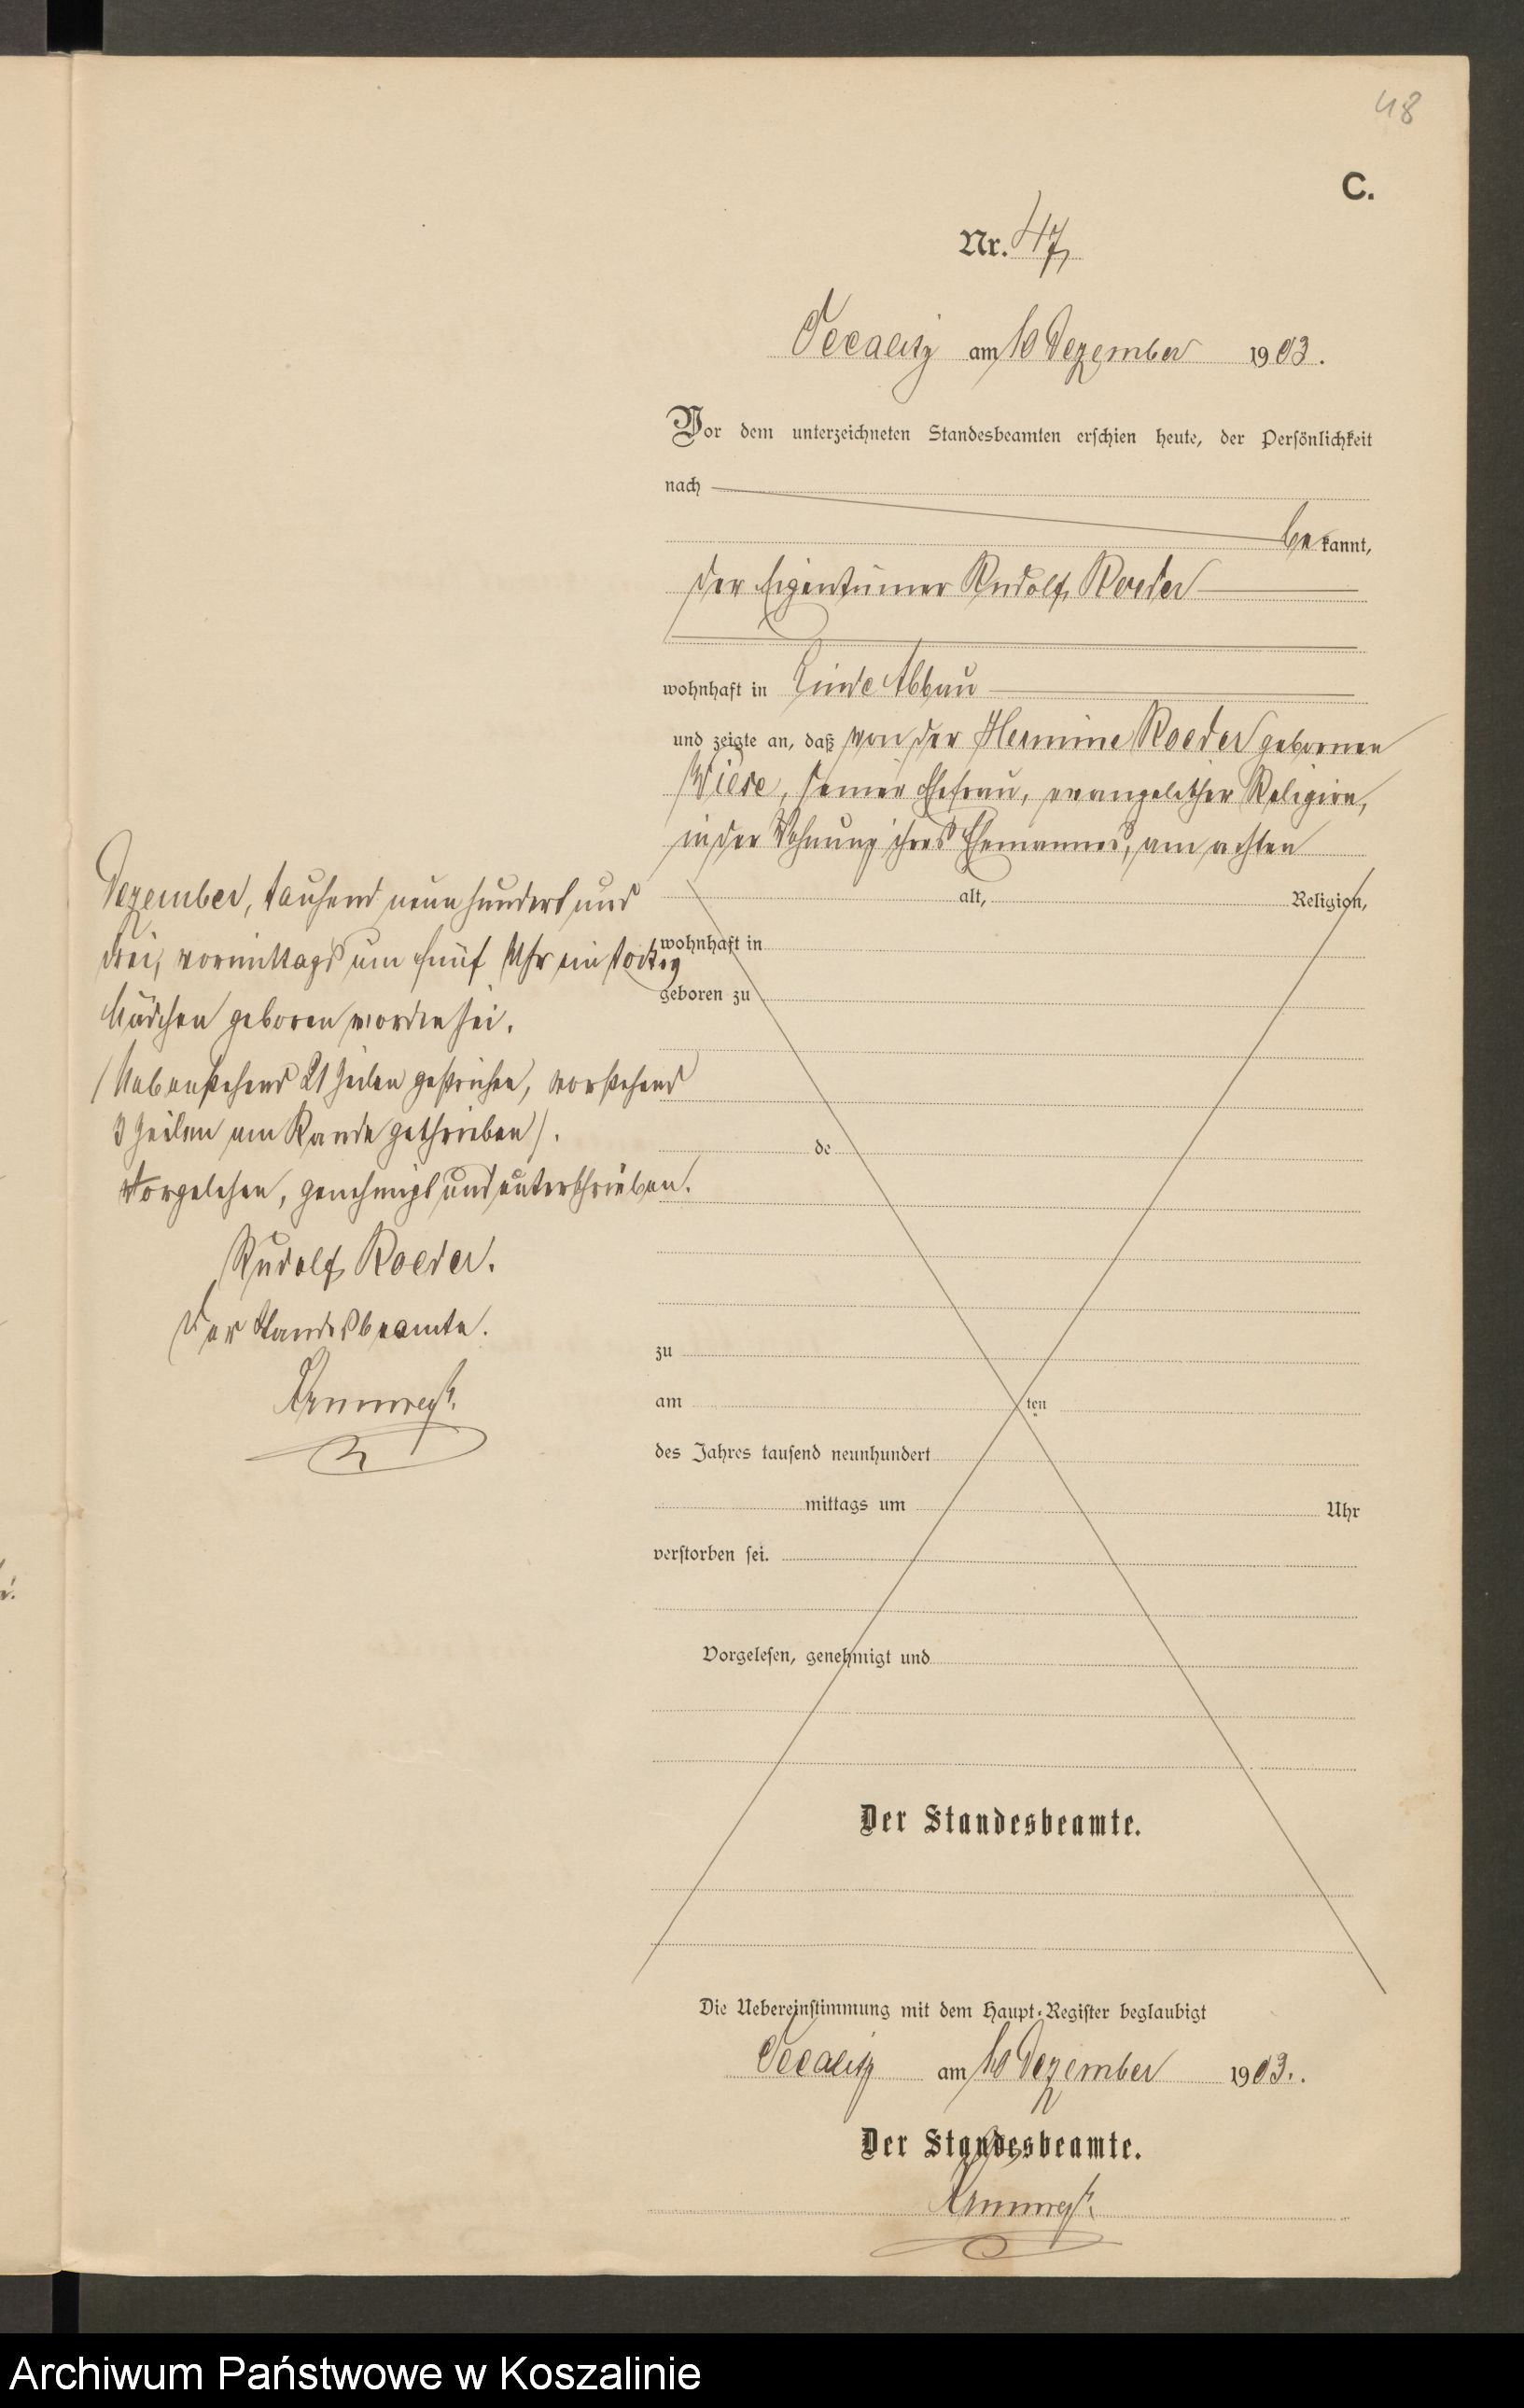 48
C.
Nr. 47
am 10 Dezember 1903.
Vor dem unterzeichneten Standesbeamten erschien heute, der Persönlichkeit
nach
bekannt,
der Eigentümer Rudolf Roeder
wohnhaft in Linde Abbau
und zeigte an, daß von der Hermine Roeder gebornen
Wiese, seiner Ehefrau, evangelischer Religion,
in der Wohnung ihres Ehemannes, am achten
Dezember, tausend neunhundert und
drei, vormittags um fünf Uhr ein totes
Mädchen geboren worden sei.
(Nebenstehend 21 Zeilen gestrichen, vorstehend
3 Zeilen am Rande geschrieben).
Vorgelesen, genehmigt und unterschrieben.
Rudolf Roeder.
Der Standesbeamte.
alt, Religion,
wohnhaft in
geboren zu
de
zu
am ten
des Jahres tausend neunhundert
mittags um Uhr
verstorben sei.
Vorgelesen, genehmigt und
Der Standesbeamte.
Die Uebereinstimmung mit dem Haupt-Register beglaubigt
am 10 Dezember 1903.
Der Standesbeamte.
Archiwum Państwowe w Koszalinie